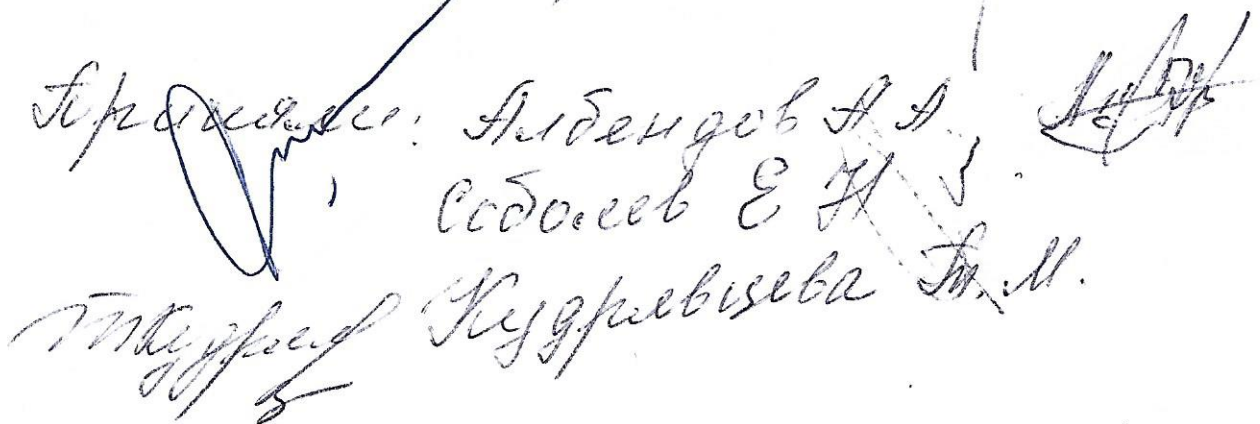 Приняли: Албендов А А.
Соболев Е Н
Кудрявцева Т. М.